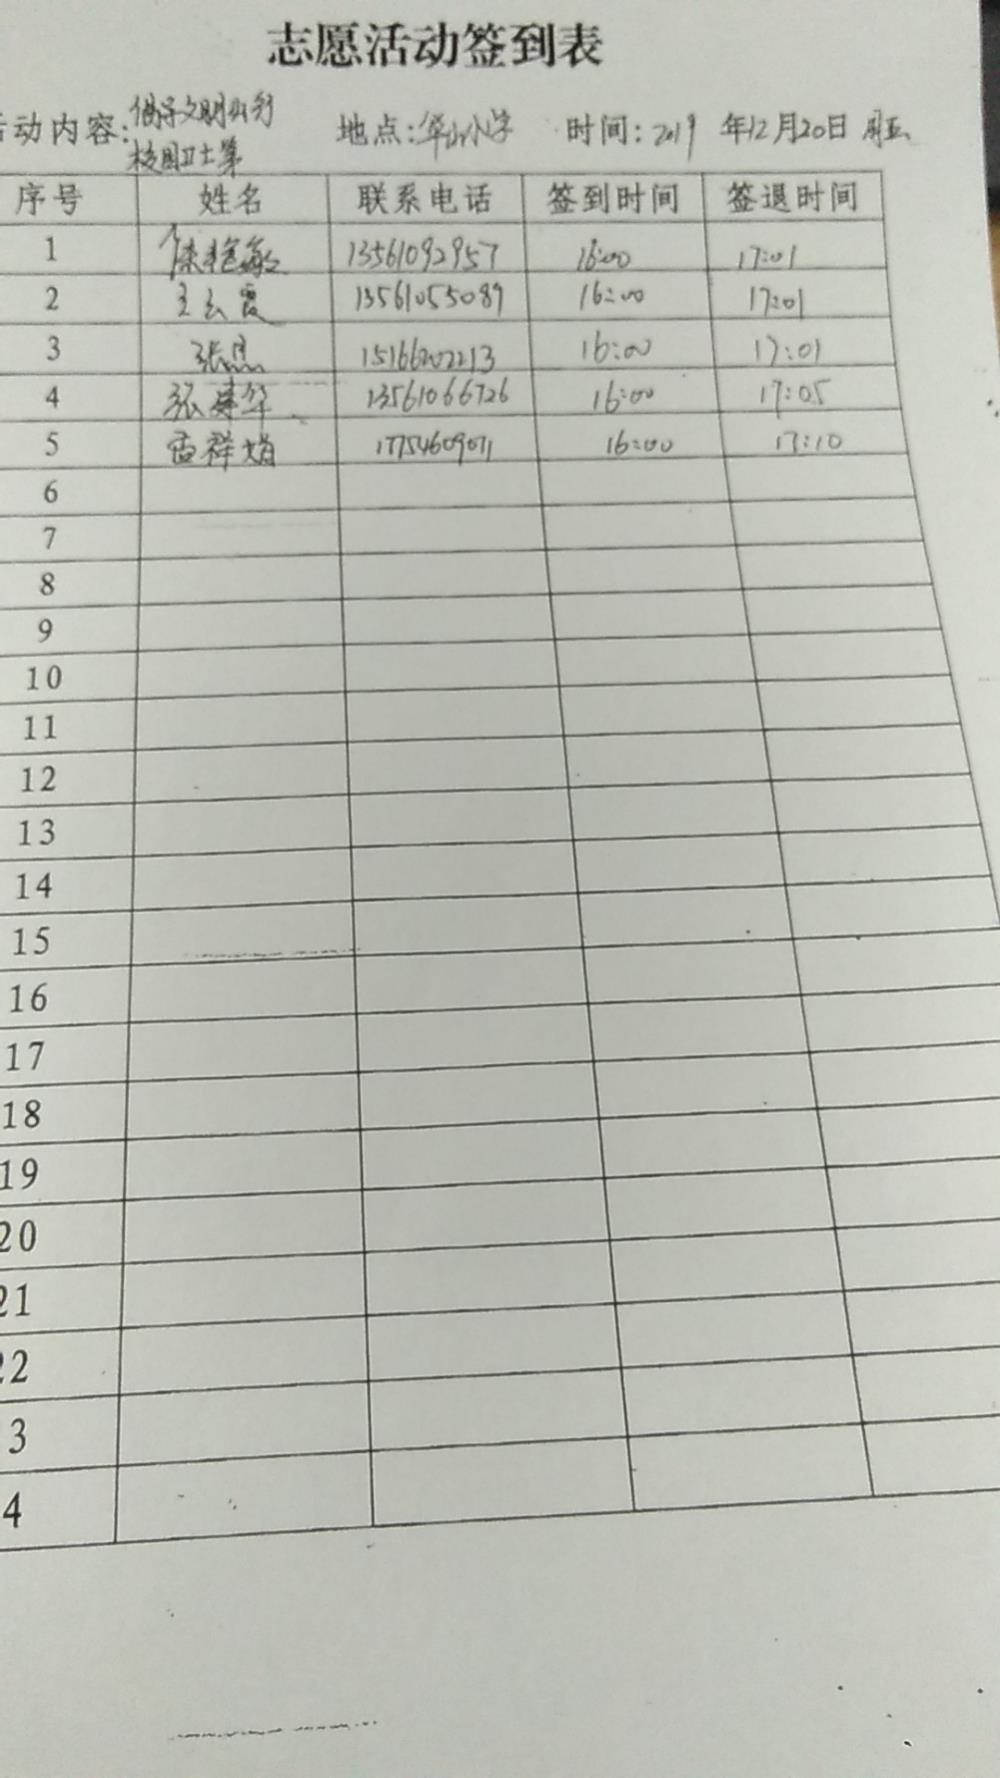 志愿活动签到表
活动内容: 倡导文明出行 地点: 华山小学 时间: 2019 年12月20日 周五
校园卫士第
序号 姓名 联系电话 签到时间 签退时间
1 陈艳敏 13561092957 16:00 17:01
2 王云霞 13561055089 16:00 17:01
3 张思 15166202213 16:00 17:01
4 张建华 13561066726 16:00 17:05
5 雷祥娟 17754609011 16:00 17:10
6
7
8
9
10
11
12
13
14
15
16
17
18
19
20
21
22
3
4